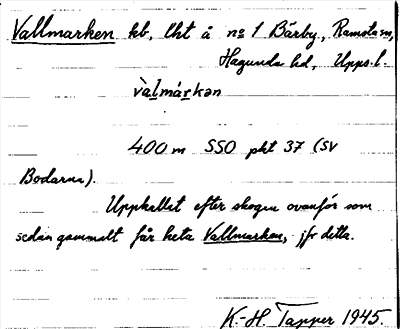 Vallmarken kb, lht å no 1 Bärby, Ramsta sn,
Hagunda hd, Upps. l.
vàlmárkən
400 m SSO pkt 37 (SV
Bodarna).
Uppkallat efter skogen ovanför som
sedan gammalt får heta Vallmarken, jfr detta.
K.-H. Tapper 1945.